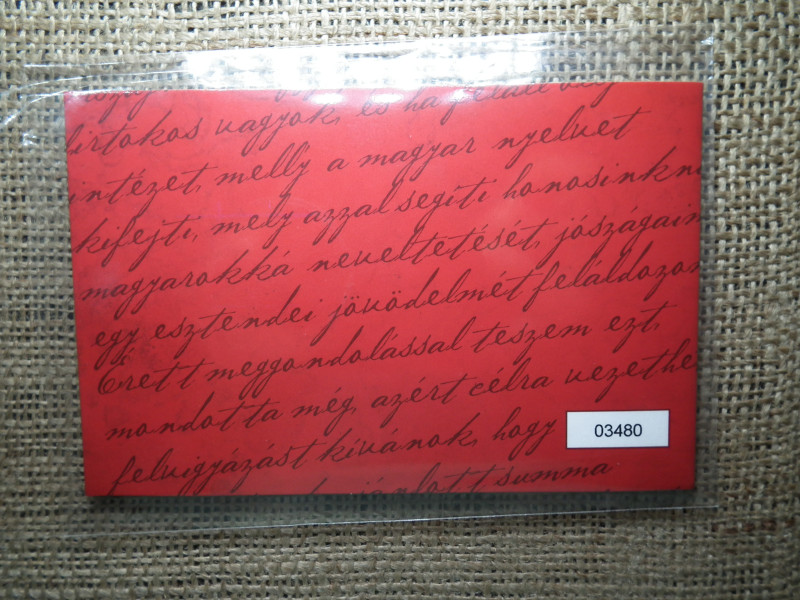 birtokos vagyok, és ha feláll
intézet, melly a magyar nyelvet
kifejti, mely azzal segíti honosinkn
magyarokká neveltetését, jószágain
egy esztendei jövödelmét feláldozom
Érett meggondolással teszem ezt,
mondotta még, azért célra vezethe
felvigyázást kívánok, hogy
03480
summa